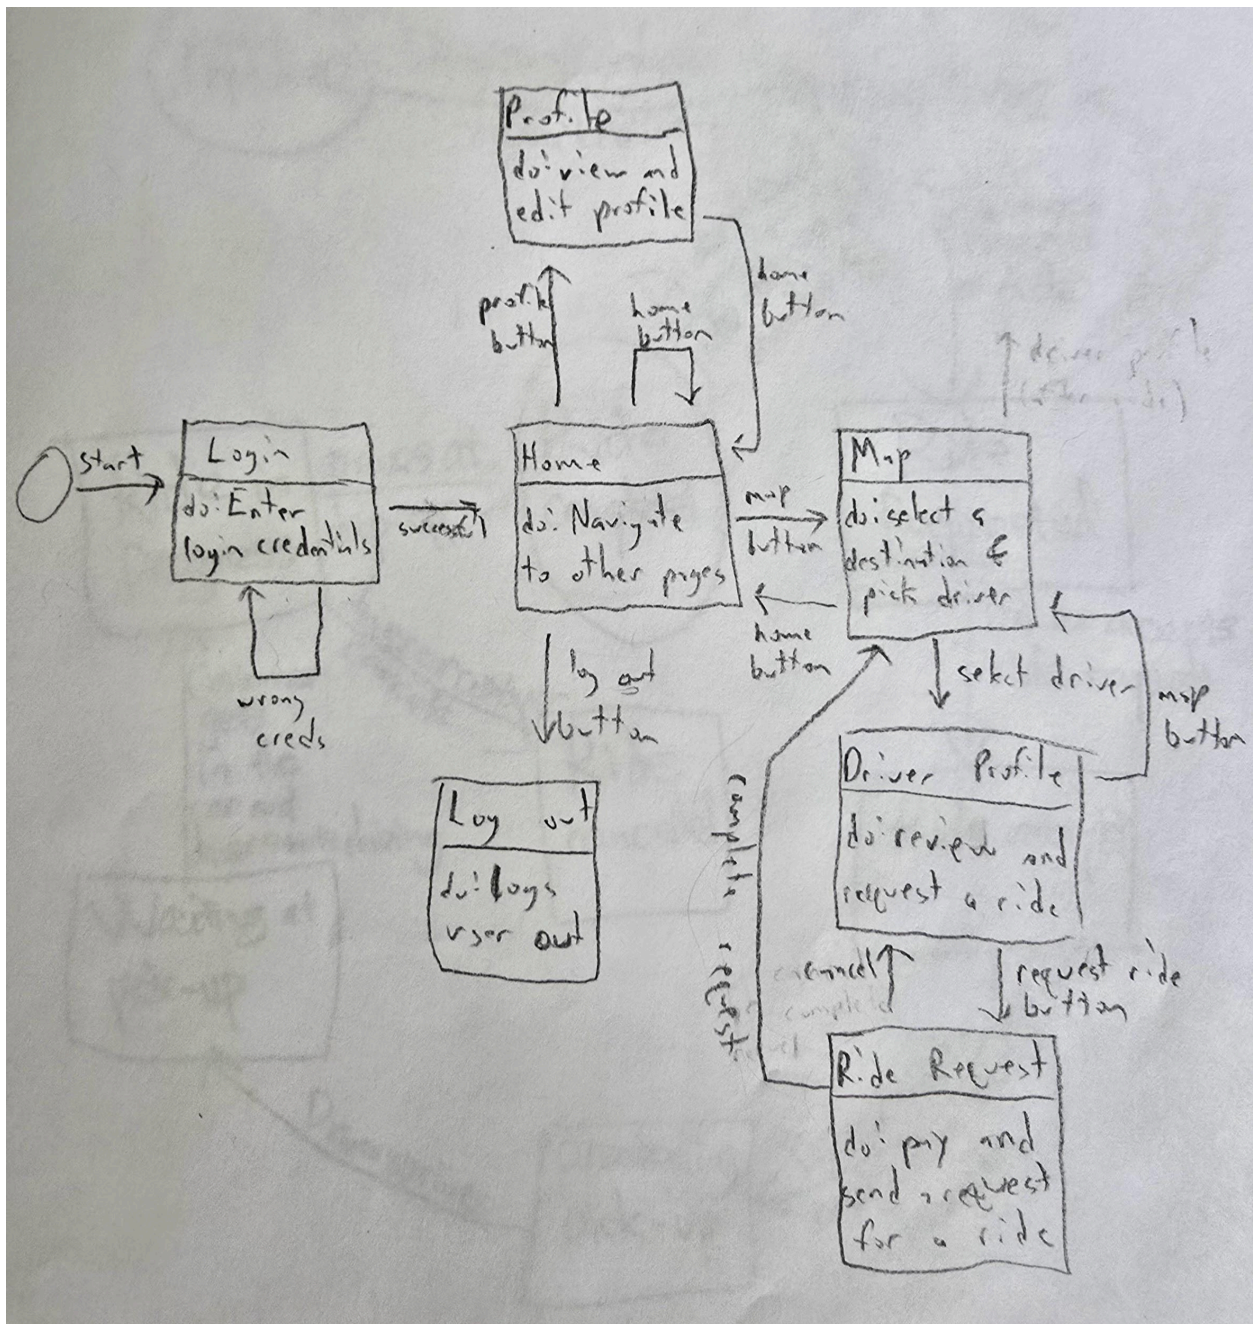 Profile
do: view and
edit profile
profile
button
home
button
home
button
start
Login
do: Enter
login credentials
successful
wrong
creds
Home
do: Navigate
to other pages
map
button
home
button
Map
do: select a
destination &
pick driver
log out
button
select driver
map
button
Log out
do: logs
user out
Driver Profile
do: review and
request a ride
complete request
cancel
request ride
button
Ride Request
do: pay and
send a request
for a ride